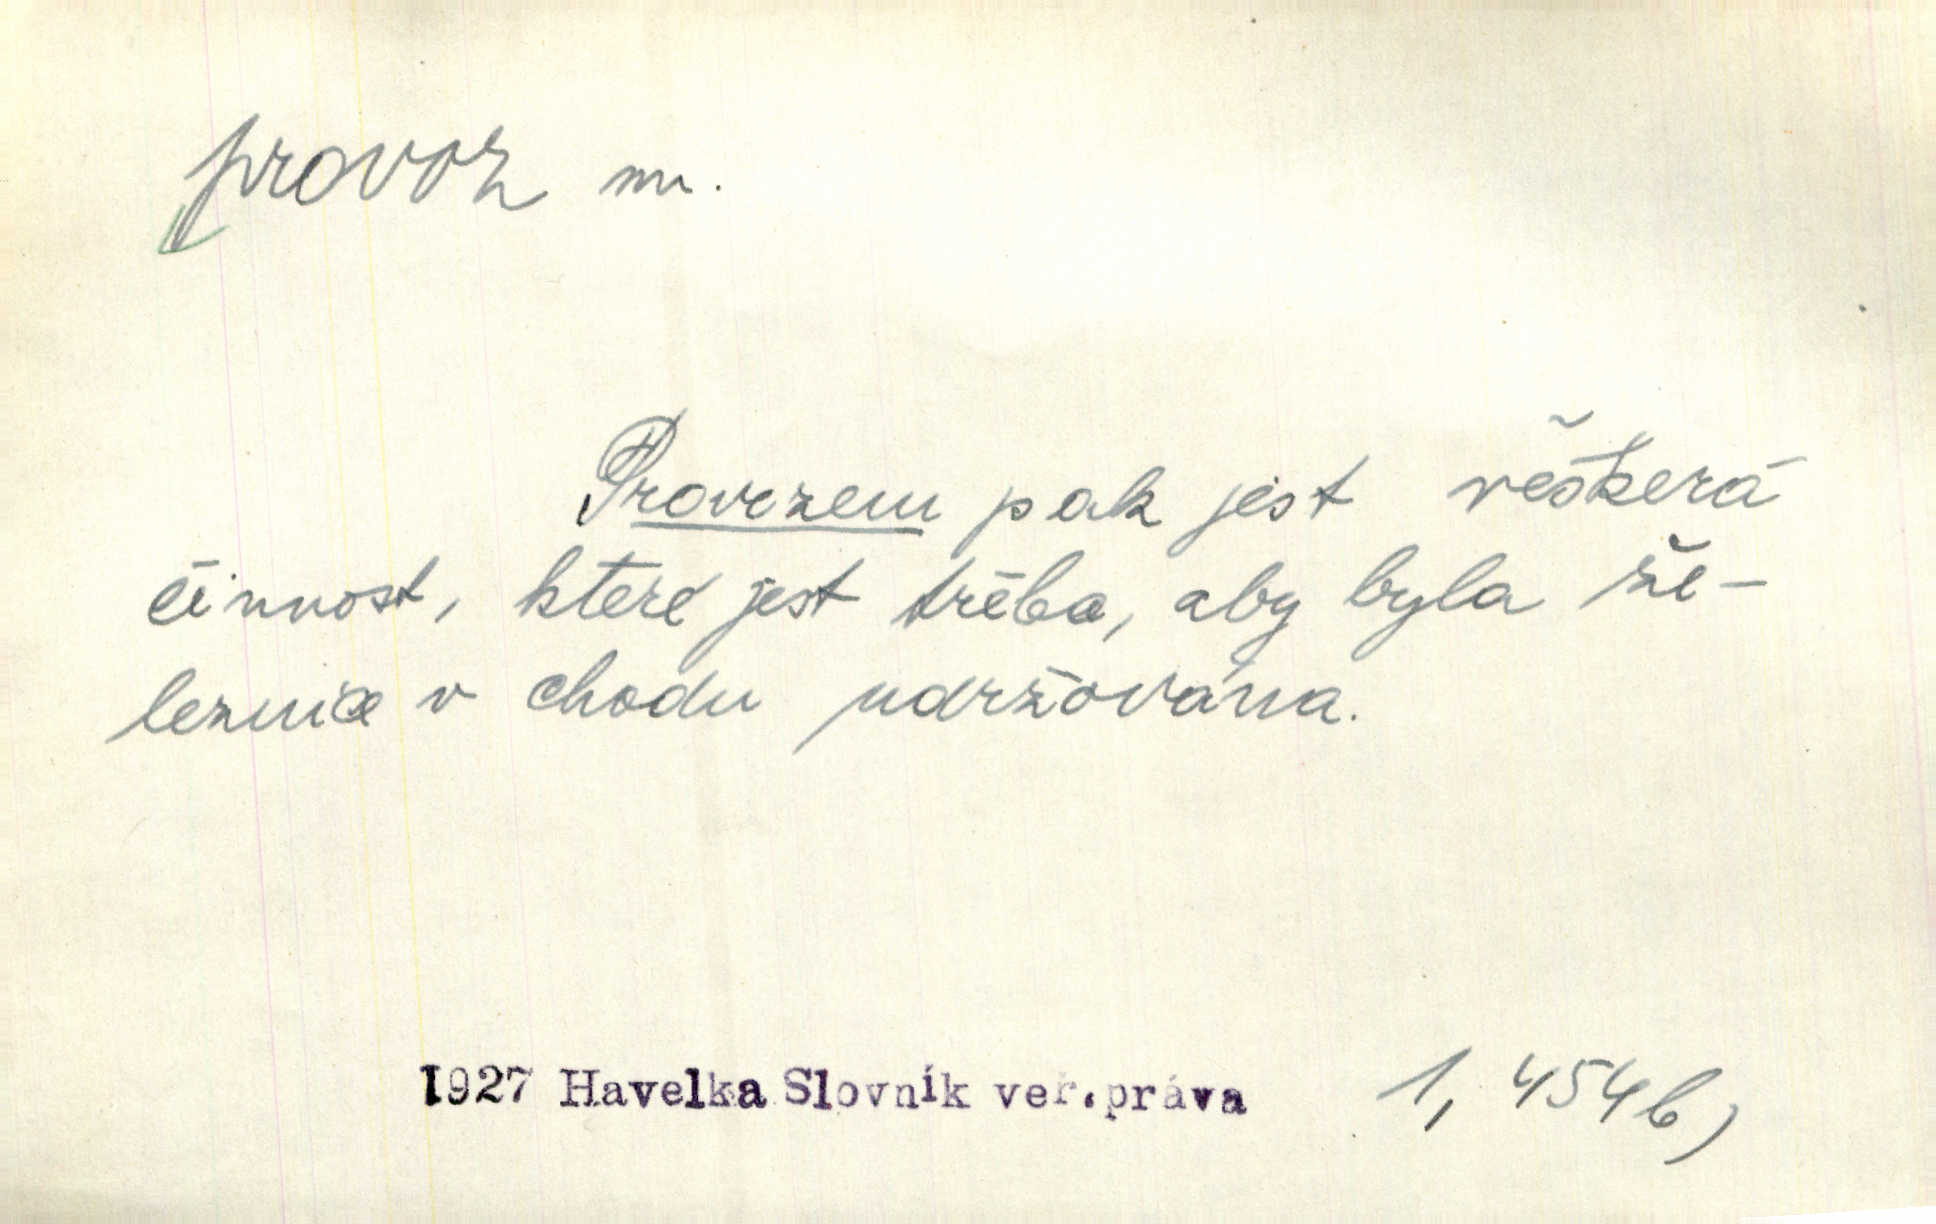 provoz m.
Provozem pak jest veškerá
činnost, které jest třeba, aby byla že-
leznice v chodu udržována.
1927 Havelka Slovník veř.práva 1, 454b)